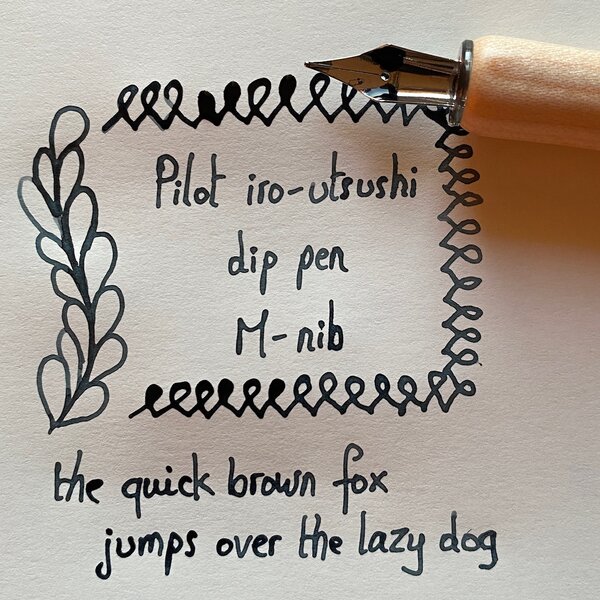 Pilot iro-utsushi
dip pen
M-nib
the quick brown fox
jumps over the lazy dog